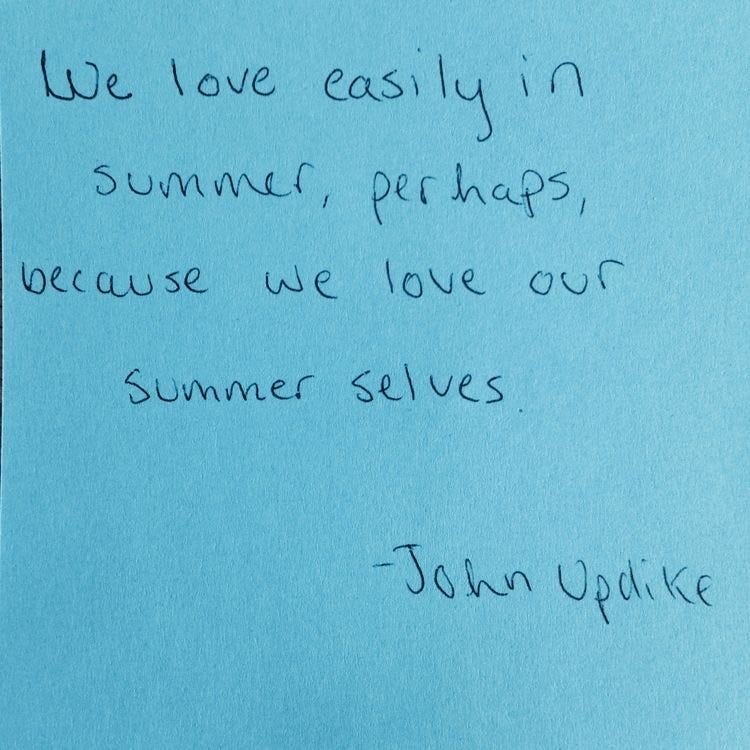 We love easily in
summer, perhaps,
because we love our
summer selves.
-John Updike